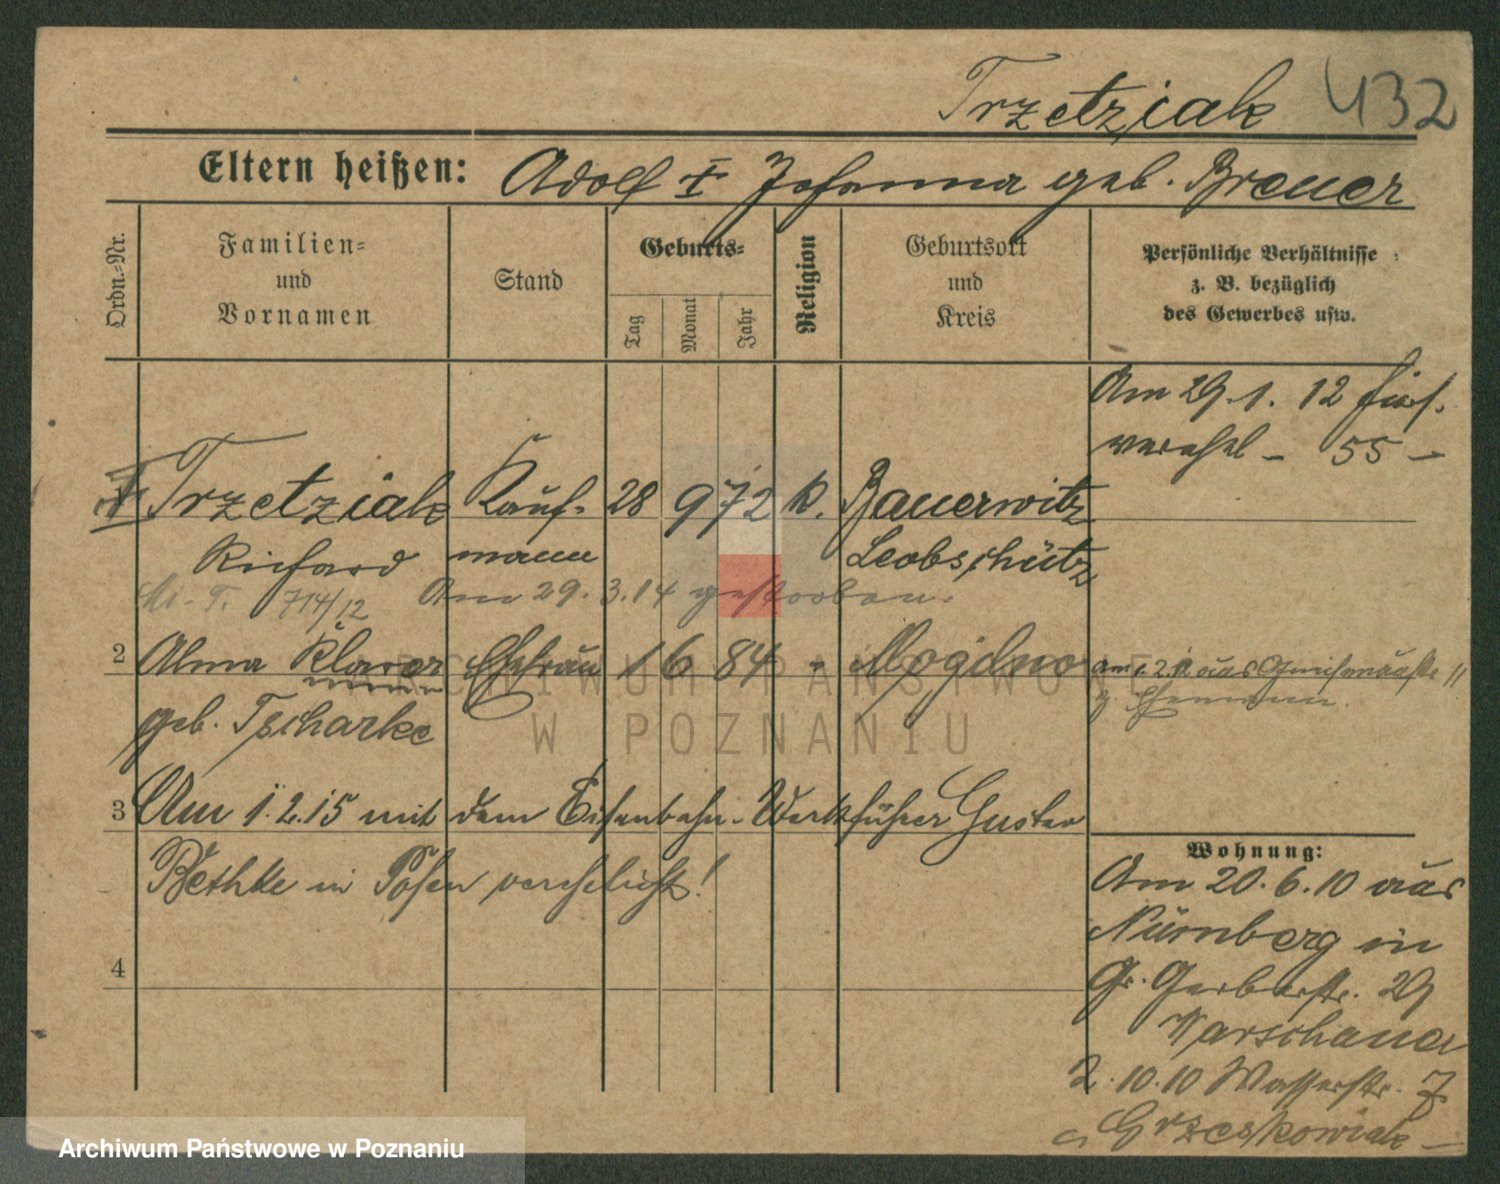 Trzetziak 432
Eltern heißen: Adolf + Johanna geb. Breuer
Ordn.-Nr.
Familien-
und
Vornamen
Stand
Geburts-
Tag
Monat
Jahr
Religion
Geburtsort
und
Kreis
Persönliche Verhältnisse
z. B. bezüglich
des Gewerbes usw.
Am 29.1.12 hier
verehel – 55 –
Trzetziak Kauf- 28 9 72 k. Bauerwitz
Richard mann Leobschütz
714/12 Am 29.3.14 gestorben.
2 Alma Klara Ehefrau 1 6 84 " Mogilno
geb. Tscharke
z. Ehemann.
3 Am 1.2.15 mit dem Eisenbahn-Werkführer Gustav
Bethke in Posen verehelicht!
4
Wohnung:
Am 20.6.10 aus
Nürnberg in
Gr. Gerberstr. 29
Warschauer
2.10.10 Wasserstr. 7
Grzeskowiak –
ARCHIWUM PAŃSTWOWE
W POZNANIU
Archiwum Państwowe w Poznaniu